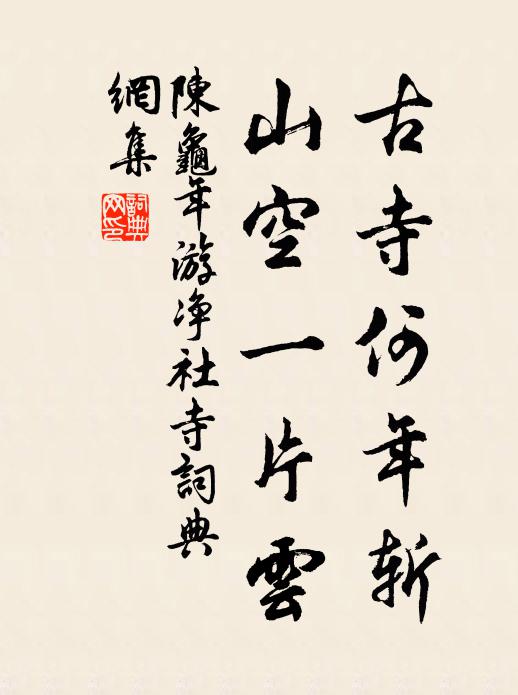 古寺何年斩
山空一片雲
陳龜年游净社寺詞典
網集
詞典
网印